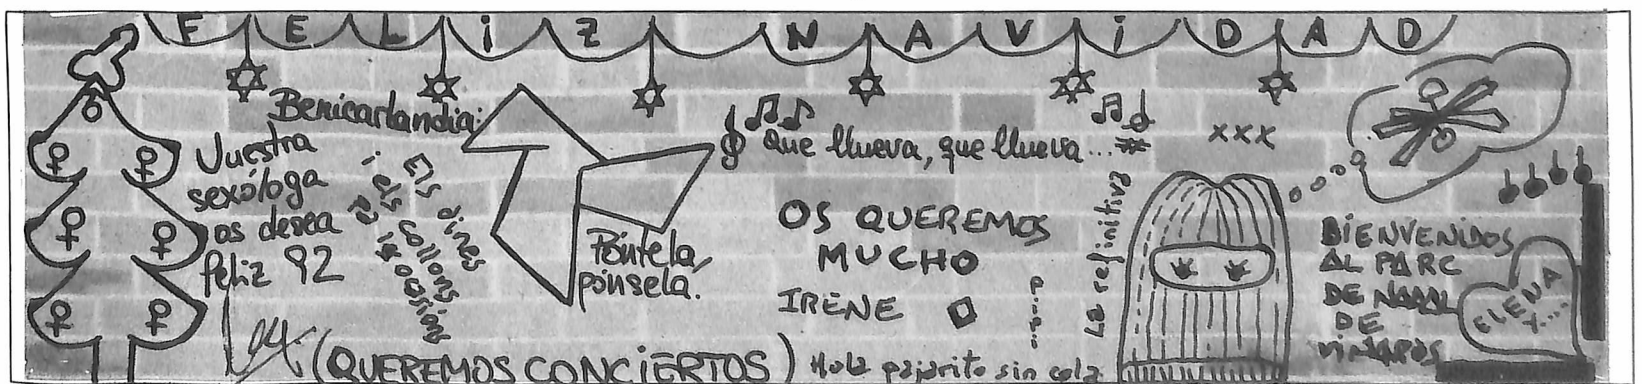 FELiZ NAViDAD
Benicarlandia:
Vuestra
sexóloga
os desea
feliz 92
Els dines
i els collons
Que llueva, que llueva...
xxx
Póntela,
pónsela.
OS QUEREMOS
MUCHO
IRENE
La refinitiva
BIENVENIDOS
AL PARC
DE NADAL
DE
ViNAROS
ELENA
Y...
(QUEREMOS CONCiERTOS)
Hola pajarito sin cola